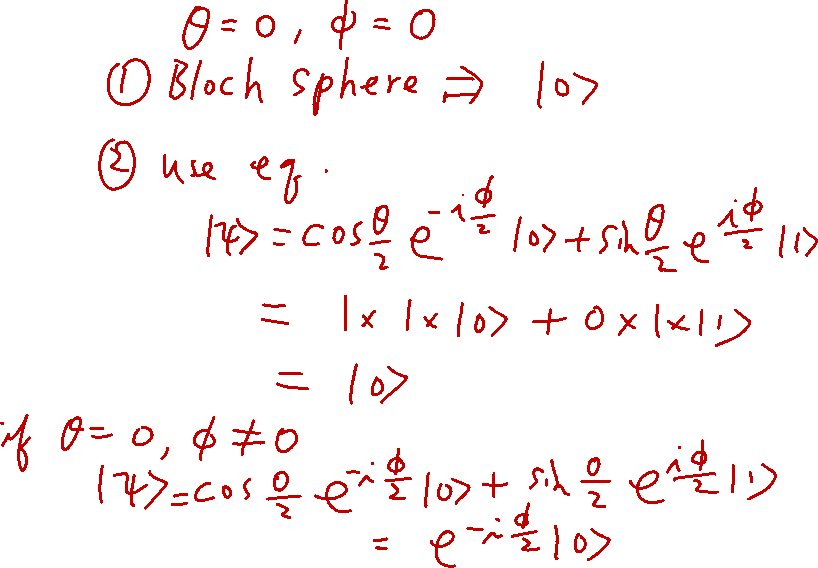 θ = 0, ϕ = 0
① Bloch sphere ⇒ |0>
② use eq.
|ψ> = cos θ/2 e^{-i ϕ/2} |0> + sin θ/2 e^{i ϕ/2} |1>
= 1 × 1 × |0> + 0 × 1 × |1>
= |0>
if θ = 0, ϕ ≠ 0
|ψ> = cos 0/2 e^{-i ϕ/2} |0> + sin 0/2 e^{i ϕ/2} |1>
= e^{-i ϕ/2} |0>